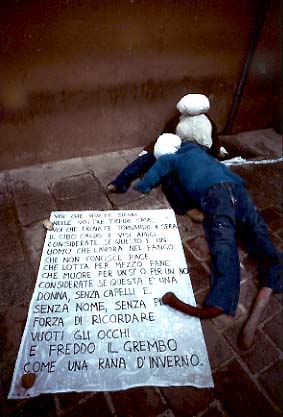 VOI CHE VIVETE SICURI
NELLE VOSTRE TIEPIDE CASE,
VOI CHE TROVATE TORNANDO A SERA
IL CIBO CALDO E VISI AMICI
CONSIDERATE SE QUESTO È UN
UOMO CHE LAVORA NEL FANGO
CHE NON CONOSCE PACE
CHE LOTTA PER MEZZO PANE
CHE MUORE PER UN SÌ O PER UN NO
CONSIDERATE SE QUESTA È UNA
DONNA, SENZA CAPELLI E
SENZA NOME, SENZA PI
FORZA DI RICORDARE
VUOTI GLI OCCHI
E FREDDO IL GREMBO
COME UNA RANA D'INVERNO.